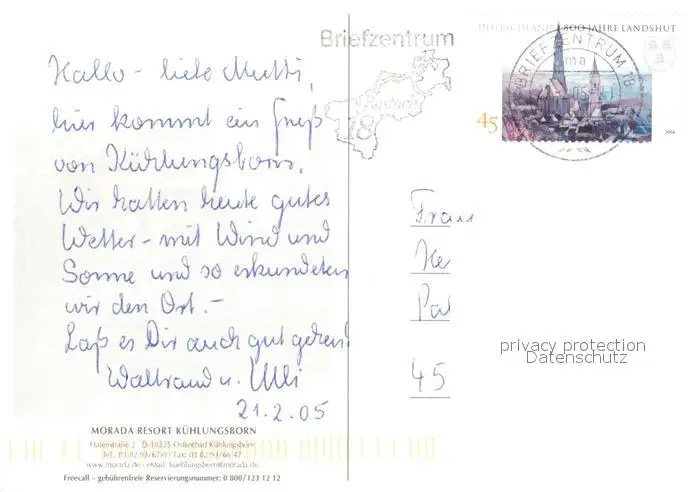 Briefzentrum
18
Rostock
DEUTSCHLAND 800 JAHRE LANDSHUT
BRIEFZENTRUM 18
ma
45
2004
Hallo - liebe Mutti,
hier kommt ein Gruß
von Kühlungsborn.
Wir hatten heute gutes
Wetter - mit Wind und
Sonne und so erkundeten
wir den Ort. -
Laß es Dir auch gut gehen!
Waltraud u. Ulli
21.2.05
Frau
He
Pal
45
privacy protection
Datenschutz
MORADA RESORT KÜHLUNGSBORN
Hafenstrasse 2 · D-18225 Ostseebad Kühlungsborn
www.morada.de · eMail: kuehlungsborn@morada.de
Freecall – gebührenfreie Reservierungsnummer: 0 800/123 12 12